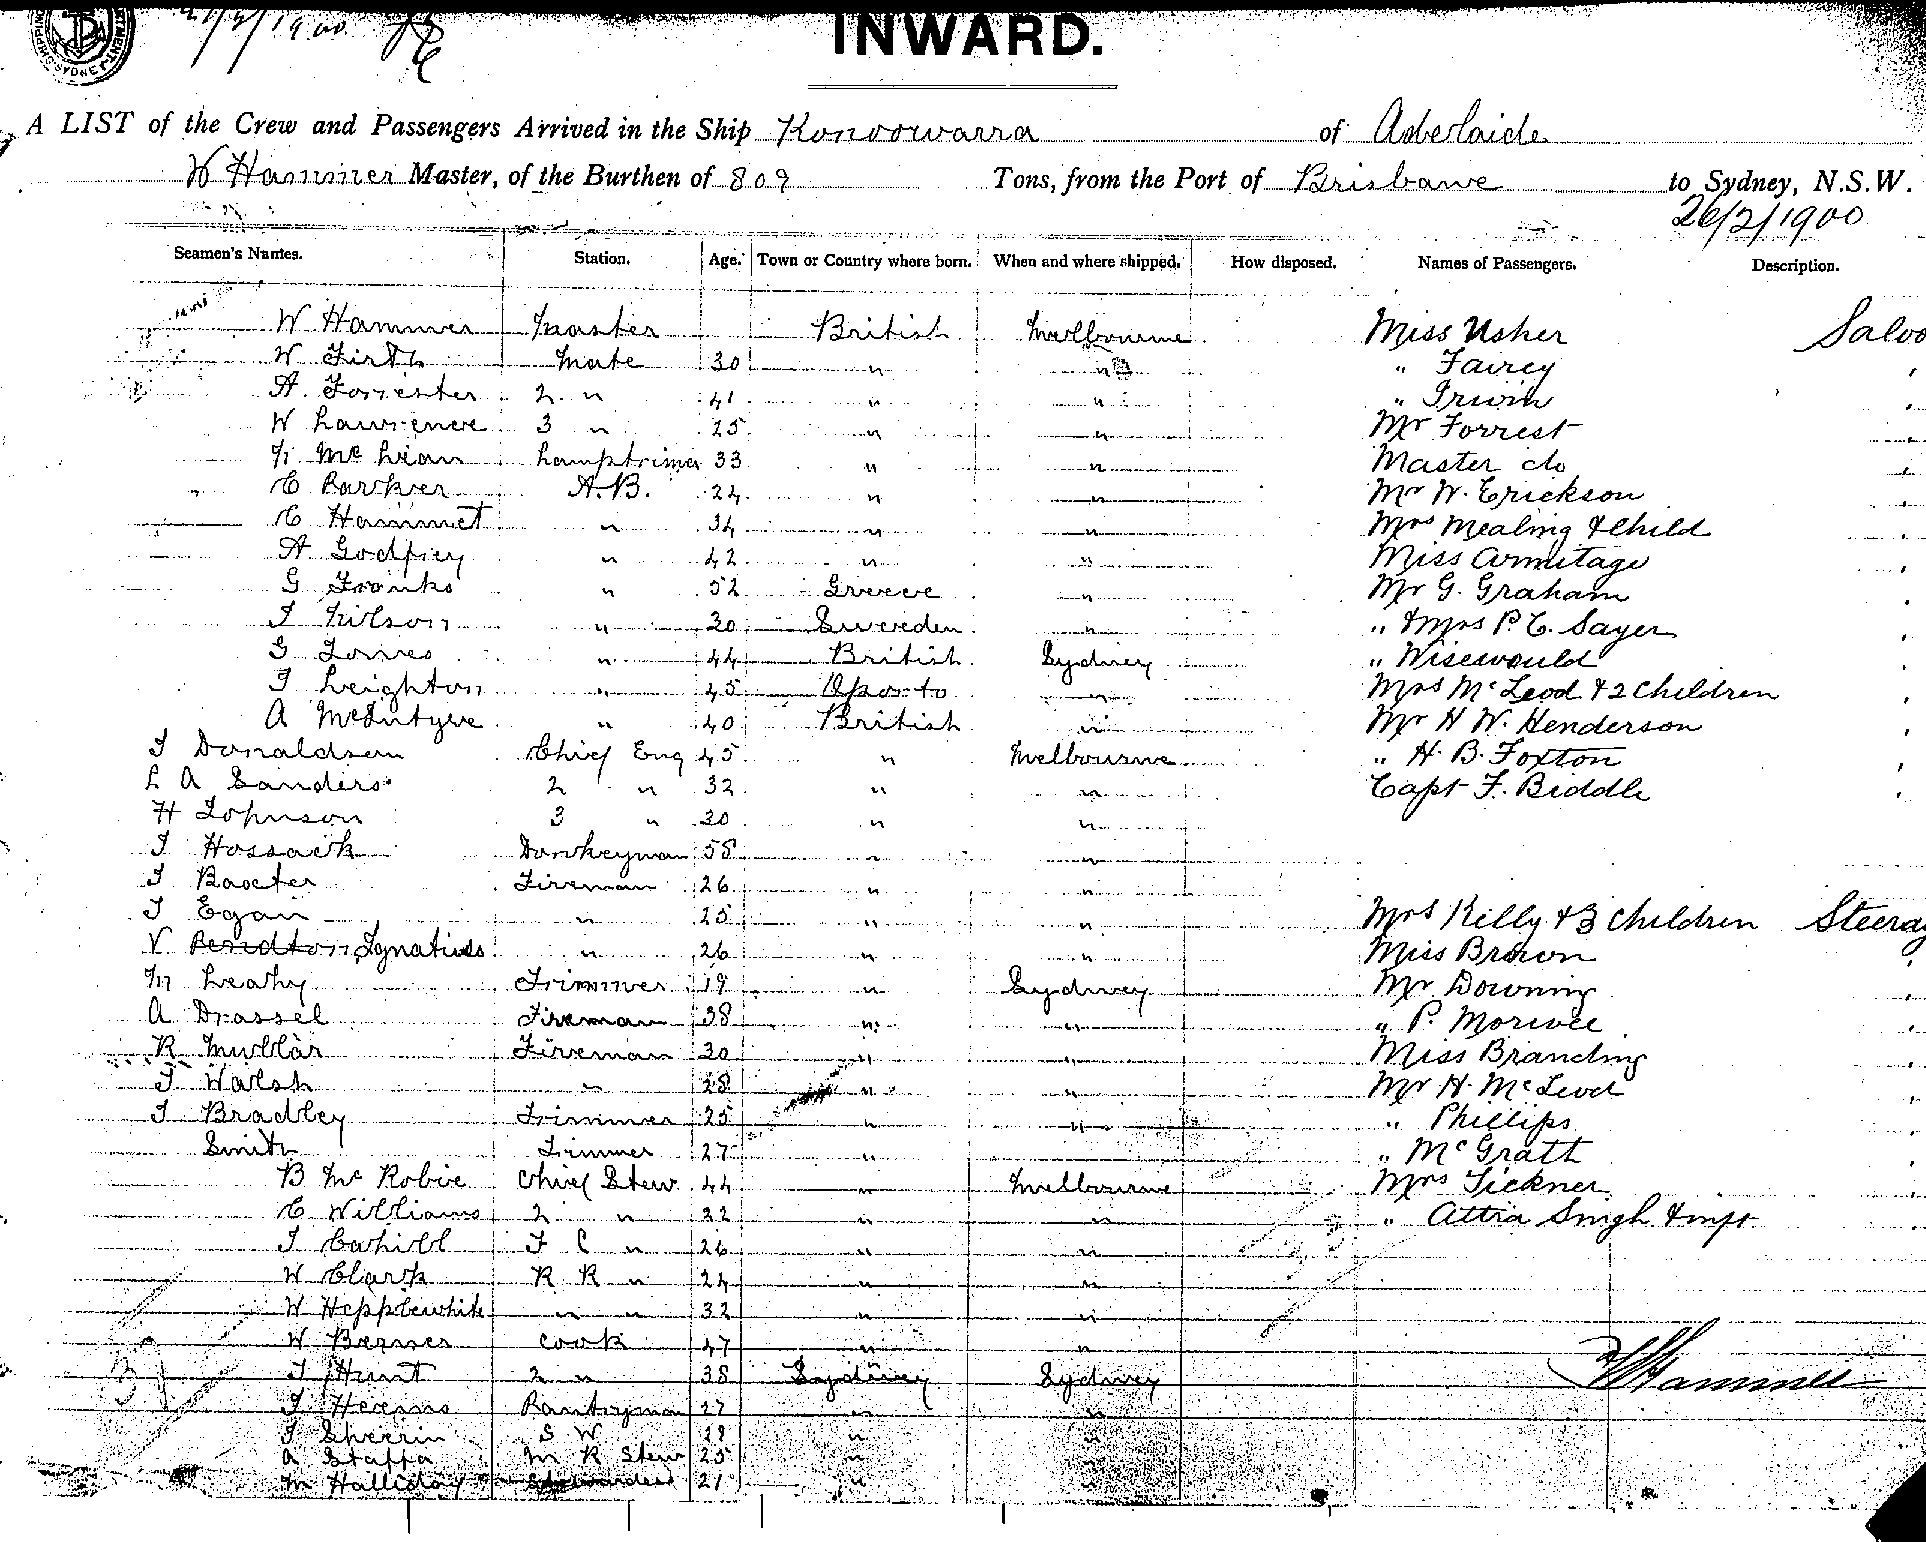 INWARD.
A LIST of the Crew and Passengers Arrived in the Ship Konoowarra of Adelaide
W Hammer Master, of the Burthen of 809 Tons, from the Port of Brisbane to Sydney, N.S.W.
26/2/1900
Seamen's Names. Station. Age. Town or Country where born. When and where shipped. How disposed. Names of Passengers. Description.
W Hammer Master British Melbourne Miss Usher Saloo
W Firth Mate 30 " " " Fairey
A. Forrester 2 " 41 " " " Irwin
W Lawrence 3 " 25 " " Mr Forrest
McLean Lamptrimer 33 " " Master do
C Parker A.B. 24 " " Mr W. Erickson
C Hammet " 34 " " Mrs Mealing & Child
A Godfrey " 42 " " Miss Armitage
G Franks " 52 Greece " Mr G. Graham
J Nilson " 30 Sweeden " " & Mrs P. C. Sayer
G Jones " 44 British Sydney " Wisewould
J Leighton " 45 Oporto " Mrs McLeod & 2 Children
A McIntyre " 40 British " Mr H W. Henderson
J Donaldson Chief Eng 45 " Melbourne " H. B. Foxton
L A Sanders 2 " 32 " " Capt F. Biddle
H Johnson 3 " 30 " "
J Hossack Donkeyman 58 " "
J Baxter Fireman 26 " "
J Egan " 25 " " Mrs Kelly & 3 Children Steerag
V Pendton Ignatius " 26 " " Miss Brown
M Leahy Trimmer 19 " Sydney Mr Downing
A Drassel Fireman 38 " " " P. Morivee
R Mullar Fireman 30 " " Miss Branding
J Walsh " 28 " " Mr H. McLeod
J Bradley Trimmer 25 " " " Phillips
Smith Trimmer 27 " " McGrath
B McRobie Chief Stew 44 " Melbourne Mrs Tickner
C Williams 2 " 22 " " " Attia Singh &
J Cahill F C " 26 " "
W Clark R R " 24 " "
W Hepplewhite " " 32 " "
W Barnes Cook 47 " "
J Hunt 2 " 38 Sydney Sydney W Hammer
J Pantryman 27 " "
J Sheerin S W " "
A Staffa M R Stew 25 " "
M Halliday 21 " "